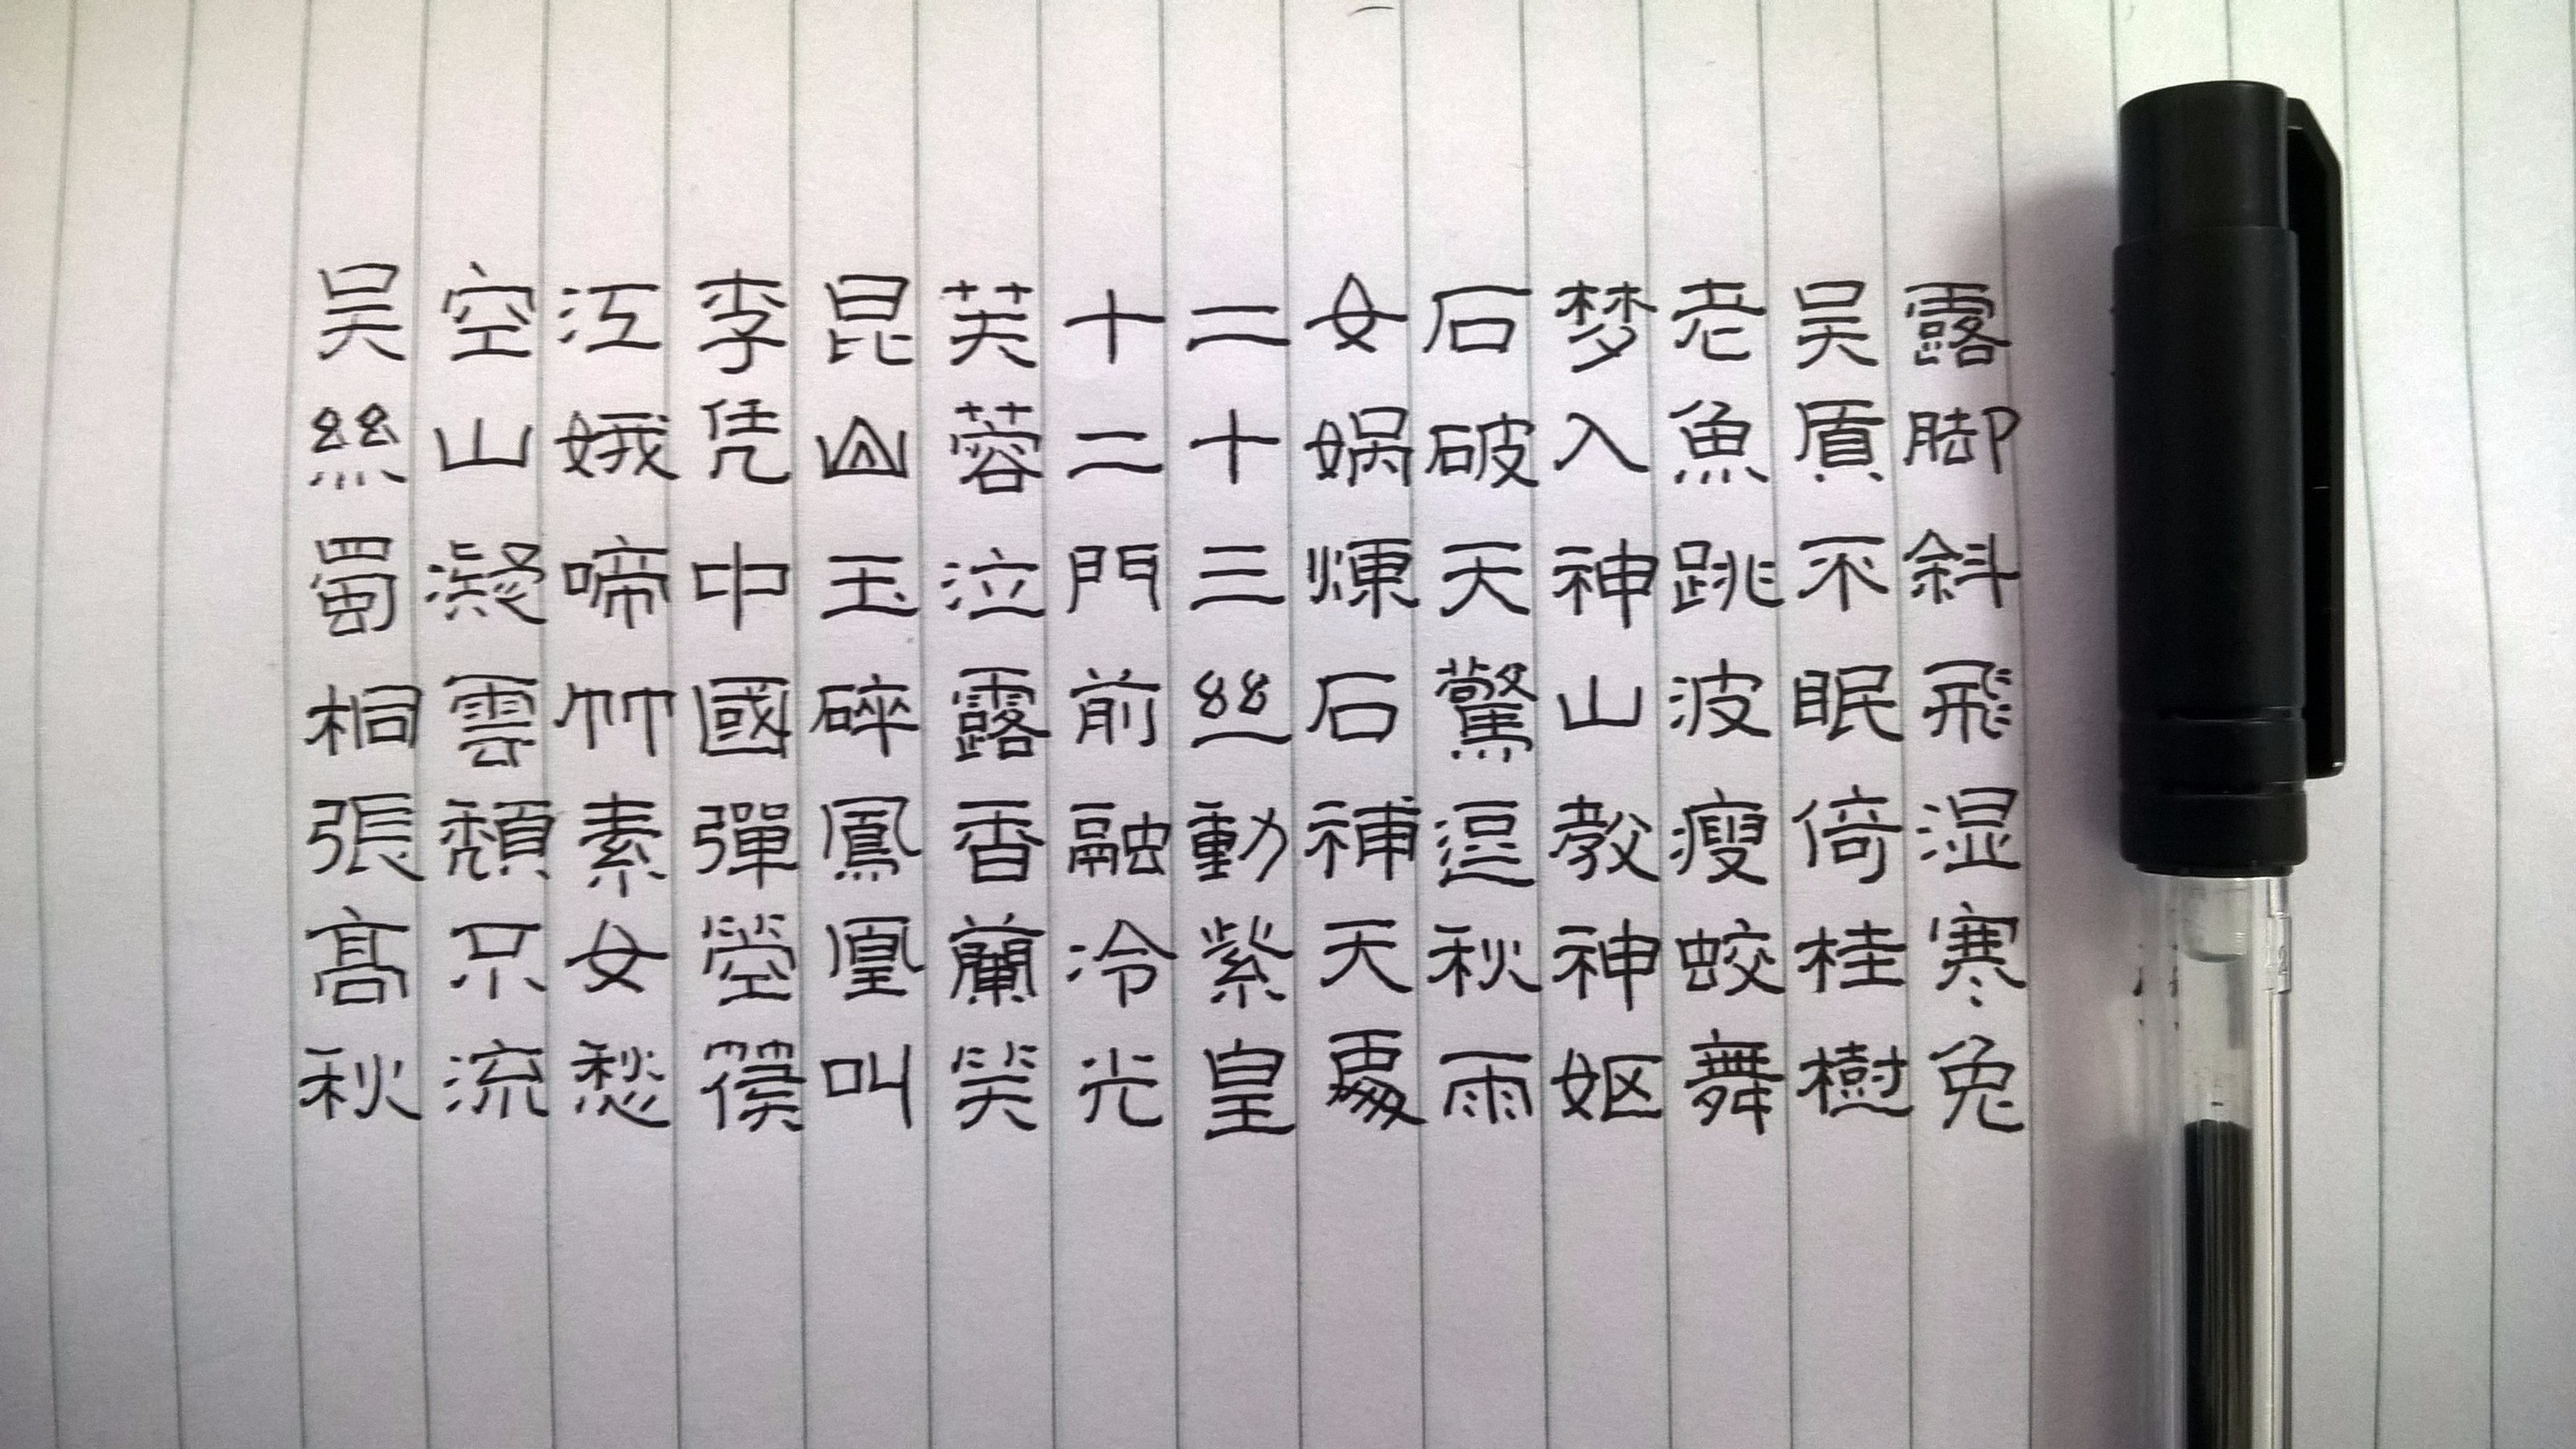 吴絲蜀桐張高秋
空山凝雲頽只流
江娥啼竹素女愁
李凭中國彈箜篌
昆山玉碎鳳凰叫
芙蓉泣露香蘭笑
十二門前融冷光
二十三絲動紫皇
女娲煉石補天處
石破天驚逗秋雨
梦入神山教神妪
老魚跳波瘦蛟舞
吴貭不眠倚桂樹
露脚斜飛湿寒兔